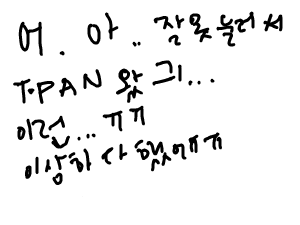 어. 아.. 잘못눌러서
T.PAN 왔긔...
이런... ㅠㅠ
이상하다했어ㅠㅠ